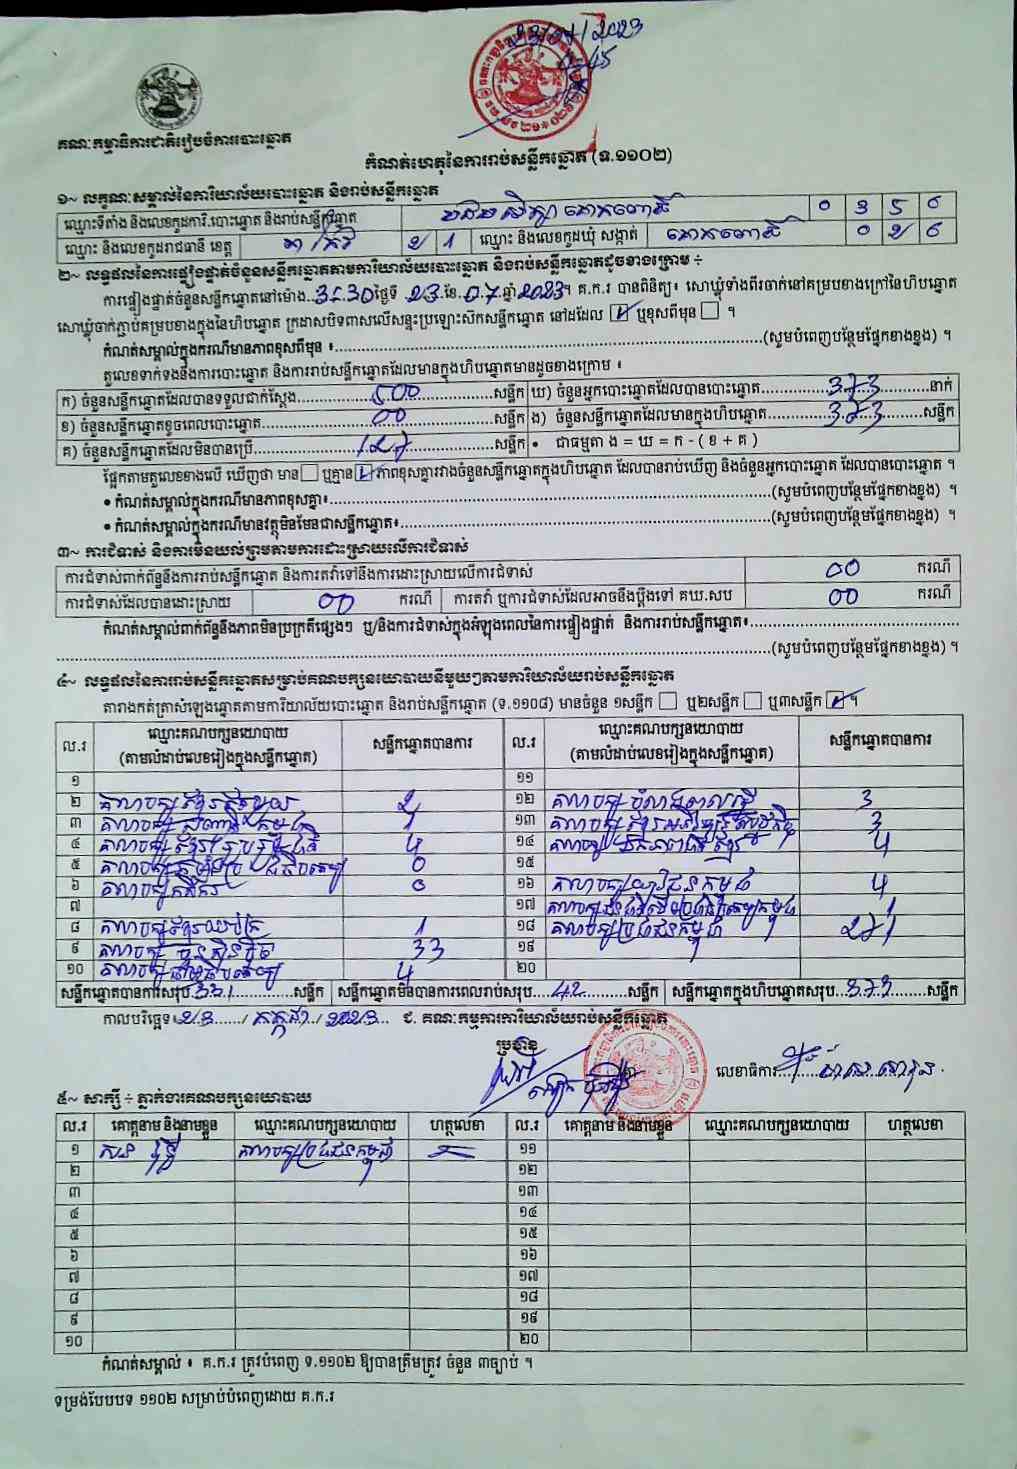 23/07/2023
គណៈកម្មាធិការជាតិរៀបចំការបោះឆ្នោត
កំណត់ហេតុនៃការរាប់សន្លឹកឆ្នោត (ទ.១១០២)
១~ លក្ខណៈសម្គាល់នៃការិយាល័យបោះឆ្នោត និងរាប់សន្លឹកឆ្នោត
ឈ្មោះទីតាំង និងលេខកូដការិ.បោះឆ្នោត និងរាប់សន្លឹកឆ្នោត
ឈ្មោះ និងលេខកូដរាជធានី ខេត្ត តាកែវ 2 1 ឈ្មោះ និងលេខកូដឃុំ សង្កាត់
២~ លទ្ធផលនៃការផ្ទៀងផ្ទាត់ចំនួនសន្លឹកឆ្នោតតាមការិយាល័យបោះឆ្នោត និងរាប់សន្លឹកឆ្នោតដូចខាងក្រោម ÷
ការផ្ទៀងផ្ទាត់ចំនួនសន្លឹកឆ្នោតនៅម៉ោង 3:30 ថ្ងៃទី 23 ខែ 07 ឆ្នាំ 2023 ។ គ.ក.រ បានពិនិត្យ៖ សោឃ្លុំទាំងពីរចាក់នៅគម្របខាងក្រៅនៃហិបឆ្នោត
សោឃ្លុំចាក់ភ្ជាប់គម្របខាងក្នុងនៃហិបឆ្នោត ក្រដាសបិទពាសលើសន្ទះប្រឡោះស៊កសន្លឹកឆ្នោត នៅដដែល ☑ ឬខុសពីមុន ☐ ។
កំណត់សម្គាល់ក្នុងករណីមានភាពខុសពីមុន ៖ (សូមបំពេញបន្ថែមផ្នែកខាងខ្នង) ។
តួលេខទាក់ទងនឹងការបោះឆ្នោត និងការរាប់សន្លឹកឆ្នោតដែលមានក្នុងហិបឆ្នោតមានដូចខាងក្រោម ៖
ក) ចំនួនសន្លឹកឆ្នោតដែលបានទទួលជាក់ស្តែង 500 សន្លឹក ឃ) ចំនួនអ្នកបោះឆ្នោតដែលបានបោះឆ្នោត 373 នាក់
ខ) ចំនួនសន្លឹកឆ្នោតខូចពេលបោះឆ្នោត 00 សន្លឹក ង) ចំនួនសន្លឹកឆ្នោតដែលមានក្នុងហិបឆ្នោត 373 សន្លឹក
គ) ចំនួនសន្លឹកឆ្នោតដែលមិនបានប្រើ 127 សន្លឹក • ជាធម្មតា ង = ឃ = ក - ( ខ + គ )
ផ្អែកតាមតួលេខខាងលើ ឃើញថា មាន ☐ ឬគ្មាន ☑ ភាពខុសគ្នារវាងចំនួនសន្លឹកឆ្នោតក្នុងហិបឆ្នោត ដែលបានរាប់ឃើញ និងចំនួនអ្នកបោះឆ្នោត ដែលបានបោះឆ្នោត ។
• កំណត់សម្គាល់ក្នុងករណីមានភាពខុសគ្នា៖ (សូមបំពេញបន្ថែមផ្នែកខាងខ្នង) ។
• កំណត់សម្គាល់ក្នុងករណីមានវត្ថុមិនមែនជាសន្លឹកឆ្នោត៖ (សូមបំពេញបន្ថែមផ្នែកខាងខ្នង) ។
៣~ ការជំទាស់ និងការមិនយល់ព្រមតាមការដោះស្រាយលើការជំទាស់
ការជំទាស់ពាក់ព័ន្ធនឹងការរាប់សន្លឹកឆ្នោត និងការតវ៉ាទៅនឹងការដោះស្រាយលើការជំទាស់ 00 ករណី
ការជំទាស់ដែលបានដោះស្រាយ 00 ករណី ការតវ៉ា ឬការជំទាស់ដែលអាចនឹងប្តឹងទៅ គឃ.សប 00 ករណី
កំណត់សម្គាល់ពាក់ព័ន្ធនឹងភាពមិនប្រក្រតីផ្សេងៗ ឬ/និងការជំទាស់ក្នុងអំឡុងពេលនៃការផ្ទៀងផ្ទាត់ និងការរាប់សន្លឹកឆ្នោត៖
(សូមបំពេញបន្ថែមផ្នែកខាងខ្នង) ។
៤~ លទ្ធផលនៃការរាប់សន្លឹកឆ្នោតសម្រាប់គណបក្សនយោបាយនីមួយៗតាមការិយាល័យរាប់សន្លឹកឆ្នោត
តារាងកត់ត្រាសំឡេងឆ្នោតតាមការិយាល័យបោះឆ្នោត និងរាប់សន្លឹកឆ្នោត (ទ.១១០៨) មានចំនួន ១សន្លឹក ☐ ឬ២សន្លឹក ☐ ឬ៣សន្លឹក ☑ ។
ល.រ ឈ្មោះគណបក្សនយោបាយ (តាមលំដាប់លេខរៀងក្នុងសន្លឹកឆ្នោត) សន្លឹកឆ្នោតបានការ ល.រ ឈ្មោះគណបក្សនយោបាយ (តាមលំដាប់លេខរៀងក្នុងសន្លឹកឆ្នោត) សន្លឹកឆ្នោតបានការ
១ ១១
២ គណបក្សខ្មែរតែមួយ 2 ១២ 3
៣ គណបក្ស 1 ១៣ គណបក្ស 3
៤ គណបក្ស 4 ១៤ គណបក្ស 4
៥ គណបក្ស 0 ១៥
៦ គណបក្សកសិករ 0 ១៦ គណបក្សយុវជនកម្ពុជា 4
៧ ១៧ គណបក្ស 1
៨ គណបក្ស 1 ១៨ គណបក្សប្រជាជនកម្ពុជា 271
៩ គណបក្ស ហ្វ៊ុនស៊ិនប៉ិច 33 ១៩
១០ គណបក្ស 4 ២០
សន្លឹកឆ្នោតបានការសរុប 331 សន្លឹក សន្លឹកឆ្នោតមិនបានការពេលរាប់សរុប 42 សន្លឹក សន្លឹកឆ្នោតក្នុងហិបឆ្នោតសរុប 373 សន្លឹក
កាលបរិច្ឆេទ៖ 23 / កក្កដា / 2023 ជ. គណៈកម្មការការិយាល័យរាប់សន្លឹកឆ្នោត
ប្រធាន
លេខាធិការ
៥~ សាក្សី ÷ ភ្នាក់ងារគណបក្សនយោបាយ
ល.រ គោត្តនាម និងនាមខ្លួន ឈ្មោះគណបក្សនយោបាយ ហត្ថលេខា ល.រ គោត្តនាម និងនាមខ្លួន ឈ្មោះគណបក្សនយោបាយ ហត្ថលេខា
១ គណបក្សប្រជាជនកម្ពុជា ១១
២ ១២
៣ ១៣
៤ ១៤
៥ ១៥
៦ ១៦
៧ ១៧
៨ ១៨
៩ ១៩
១០ ២០
កំណត់សម្គាល់ ៖ គ.ក.រ ត្រូវបំពេញ ទ.១១០២ ឱ្យបានត្រឹមត្រូវ ចំនួន ៣ច្បាប់ ។
ទម្រង់បែបបទ ១១០២ សម្រាប់បំពេញដោយ គ.ក.រ